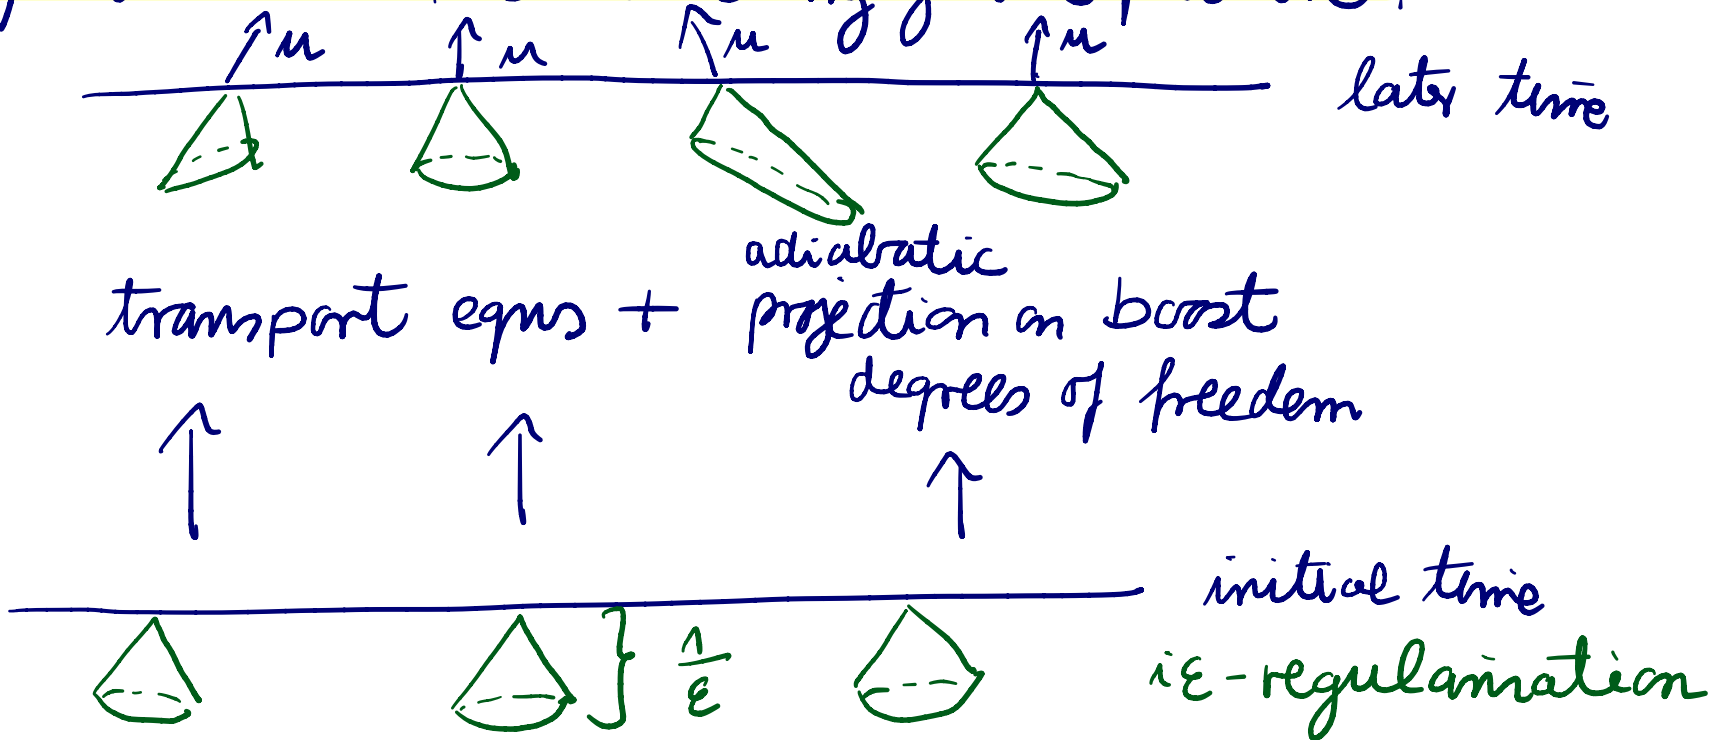 u u u u
later time
adiabatic
transport eqns + projection on boost
degrees of freedom
initial time
1/ε
iε-regularization